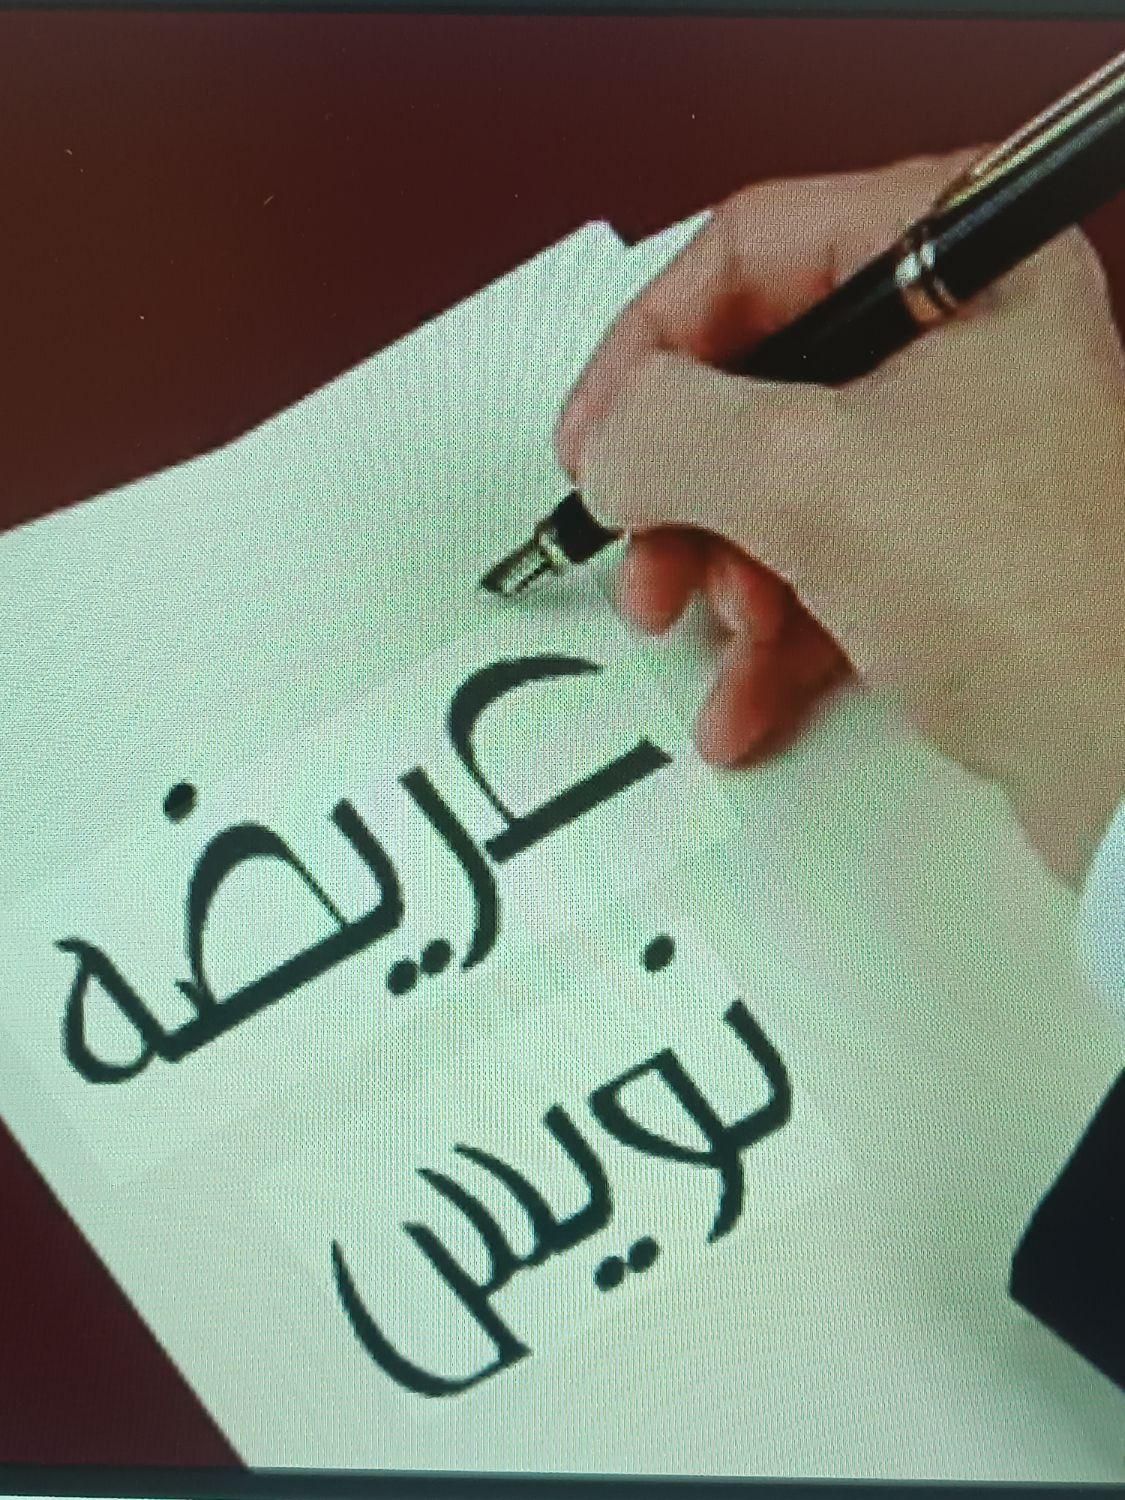 عریضه
نویس